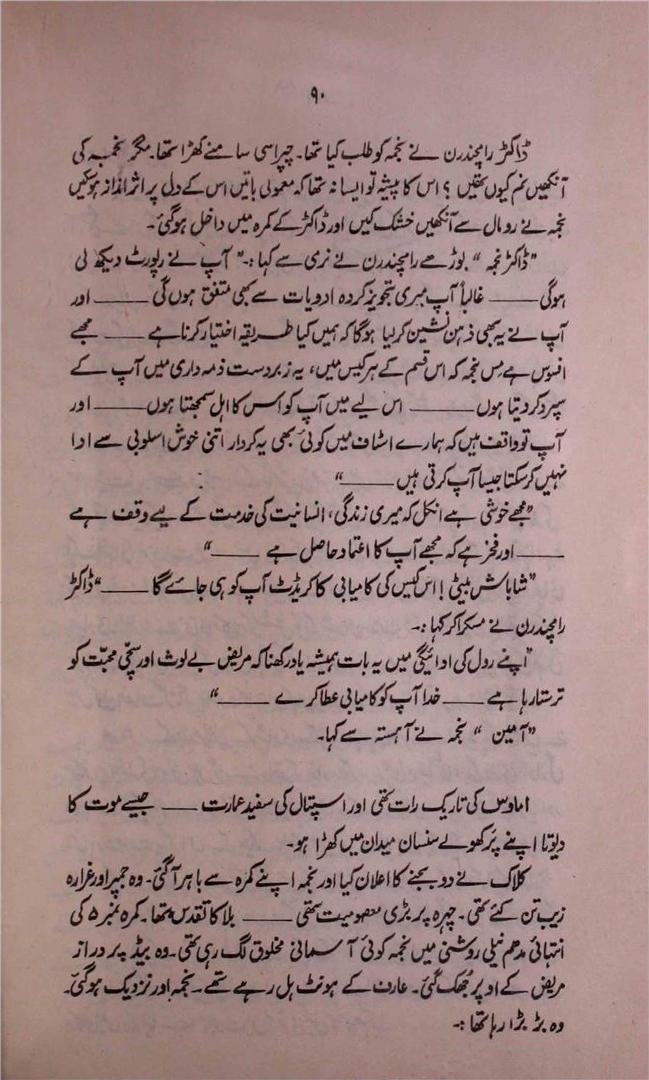 ۹۰
ڈاکٹر رامچندرن نے نجمہ کو طلب کیا تھا۔ چپراسی سامنے کھڑا تھا۔ مگر نجمہ کی
آنکھیں نم کیوں تھیں ؟ اس کا پیشہ تو ایسا نہ تھا کہ معمولی باتیں اس کے دل پر اثر انداز ہوسکیں
نجمہ نے رومال سے آنکھیں خشک کیں اور ڈاکٹر کے کمرہ میں داخل ہوگئی۔
”ڈاکٹر نجمہ “ بوڑھے رامچندرن نے نرمی سے کہا :۔ ” آپ نے رپورٹ دیکھ لی
ہوگی ــــــ غالباً آپ میری تجویز کردہ ادویات سے بھی متفق ہوں گی ــــــ اور
آپ نے یہ بھی ذہن نشین کرلیا ہوگا کہ ہمیں کیا طریقہ اختیار کرنا ہے ــــــ مجھے
افسوس ہے مِس نجمہ کہ اس قسم کے ہر کیس میں، یہ زبردست ذمہ داری میں آپ کے
سپرد کردیتا ہوں ــــــ اس لیے میں آپ کو اس کا اہل سمجھتا ہوں ــــــ اور
آپ تو واقف ہیں کہ ہمارے اسٹاف میں کوئی بھی یہ کردار اتنی خوش اسلوبی سے ادا
نہیں کرسکتا جیسا آپ کرتی ہیں ــــــ “
”مجھے خوشی ہے انکل کہ میری زندگی، انسانیت کی خدمت کے لیے وقف ہے
ــــــ اور فخر ہے کہ مجھے آپ کا اعتماد حاصل ہے ــــــ “
”شاباش بیٹی ! اس کیس کی کامیابی کا کریڈٹ آپ کو ہی جائے گا ــــــ “ ڈاکٹر
رامچندرن نے مسکرا کر کہا :۔
”اپنے رول کی ادائیگی میں یہ بات ہمیشہ یاد رکھنا کہ مریض بے لوث اور سچّی محبّت کو
ترستا رہا ہے ــــــ خدا آپ کو کامیابی عطا کرے ــــــ “
”آمین “ نجمہ نے آہستہ سے کہا۔
اماوس کی تاریک رات تھی اور اسپتال کی سفید عمارت ــــــ جیسے موت کا
دیوتا اپنے پَر کھولے سنسان میدان میں کھڑا ہو۔
کلاک نے دو بجنے کا اعلان کیا اور نجمہ اپنے کمرہ سے باہر آگئی۔ وہ جمپر اور غرارہ
زیب تن کئے تھی۔ چہرہ پر بڑی معصومیت تھی ــــــ بلا کا تقدس تھا۔ کمرہ نمبر ۵ کی
انتہائی مدھم نیلی روشنی میں نجمہ کوئی آسمانی مخلوق لگ رہی تھی۔ وہ بیڈ پر دراز
مریض کے اوپر جھک گئی۔ عارف کے ہونٹ ہل رہے تھے۔ نجمہ اور نزدیک ہوگئی۔
وہ بڑبڑا رہا تھا :۔